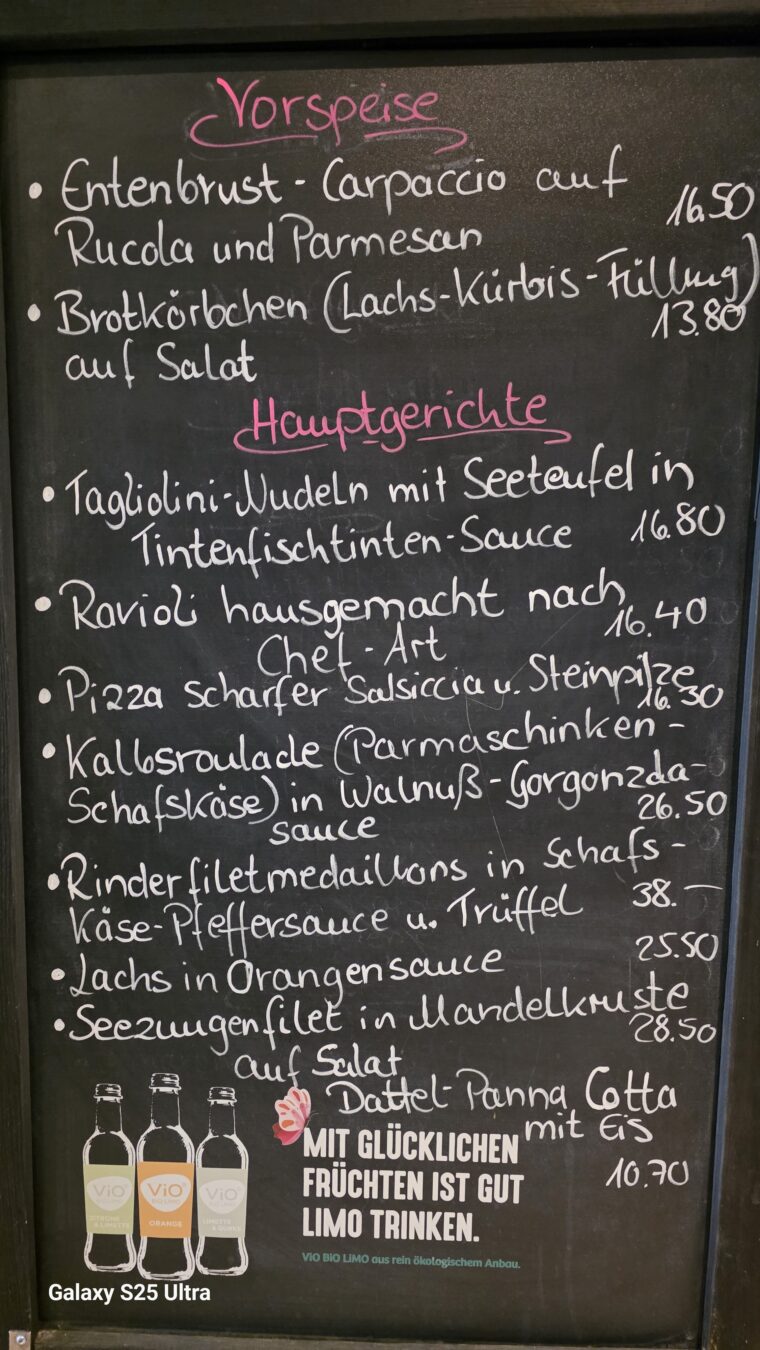 Vorspeise
• Entenbrust - Carpaccio auf
Rucola und Parmesan 16.50
• Brotkörbchen (Lachs-Kürbis-Füllung)
auf Salat 13.80
Hauptgerichte
• Tagliolini-Nudeln mit Seeteufel in
Tintenfischtinten-Sauce 16.80
• Ravioli hausgemacht nach
Chef-Art 16.40
• Pizza scharfer Salsiccia u. Steinpilze
16.30
• Kalbsroulade (Parmaschinken-
Schafskäse) in Walnuß-Gorgonzola-
sauce 26.50
• Rinderfiletmedaillons in Schafs-
Käse-Pfeffersauce u. Trüffel 38.—
• Lachs in Orangensauce 25.50
• Seezungenfilet in Mandelkruste
auf Salat 28.50
Dattel-Panna Cotta
mit Eis
10.70
MIT GLÜCKLICHEN
FRÜCHTEN IST GUT
LIMO TRINKEN.
ViO BiO LiMO aus rein ökologischem Anbau.
ViO
BiO LiMO
ZITRONE
& LIMETTE
ViO
BiO LiMO
ORANGE
ViO
BiO LiMO
LIMETTE
Galaxy S25 Ultra